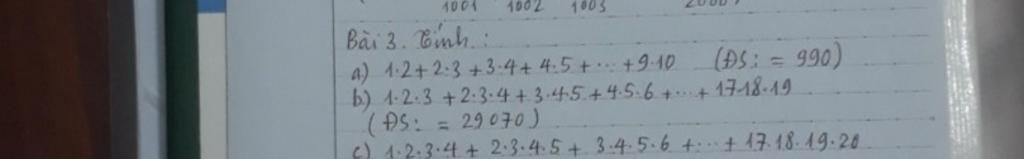 1001 1002 1003 2000
Bài 3. Tính:
a) 1.2+2.3+3.4+4.5+...+9.10 (ĐS: = 990)
b) 1.2.3+2.3.4+3.4.5+4.5.6+...+17.18.19
(ĐS: = 29070)
c) 1.2.3.4+2.3.4.5+3.4.5.6+...+17.18.19.20